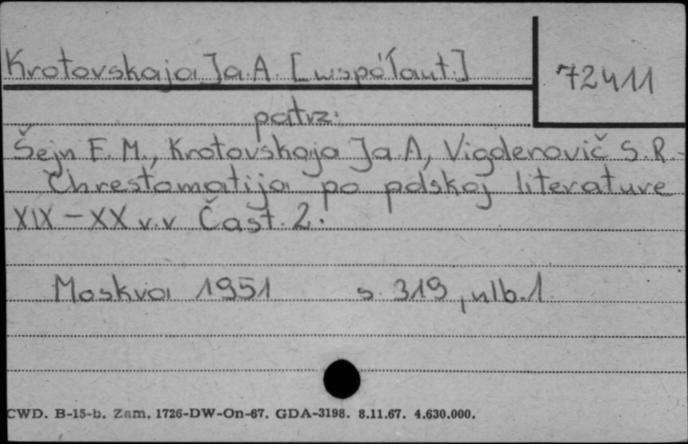 Krotovskaja Ja. A. [współaut.]
72411
patrz:
Šejn F. M., Krotovskaja Ja A, Vigderovič S. R.
Chrestomatija po polskoj literature
XIX - XX v.v Čast. 2.
Moskva 1951 s. 319, nlb. 1
CWD. B-15-b. Zam. 1726-DW-On-67. GDA-3198. 8.11.67. 4.630.000.